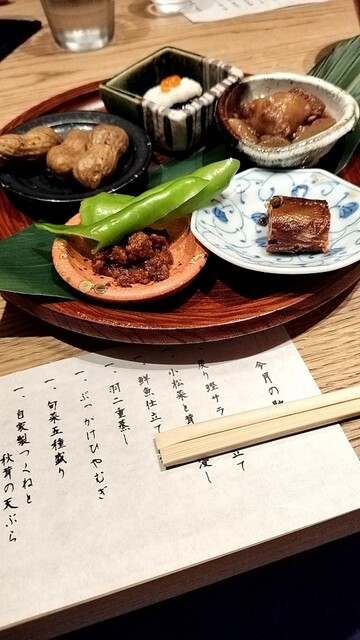 今月の
立て
戻り鰹サラ
一、小松菜と茸
浸し
一、鮮魚仕立て
一、羽二重蒸し
一、ぶっかけひやむぎ
一、旬菜五種盛り
一、自家製つくねと
秋茸の天ぷら